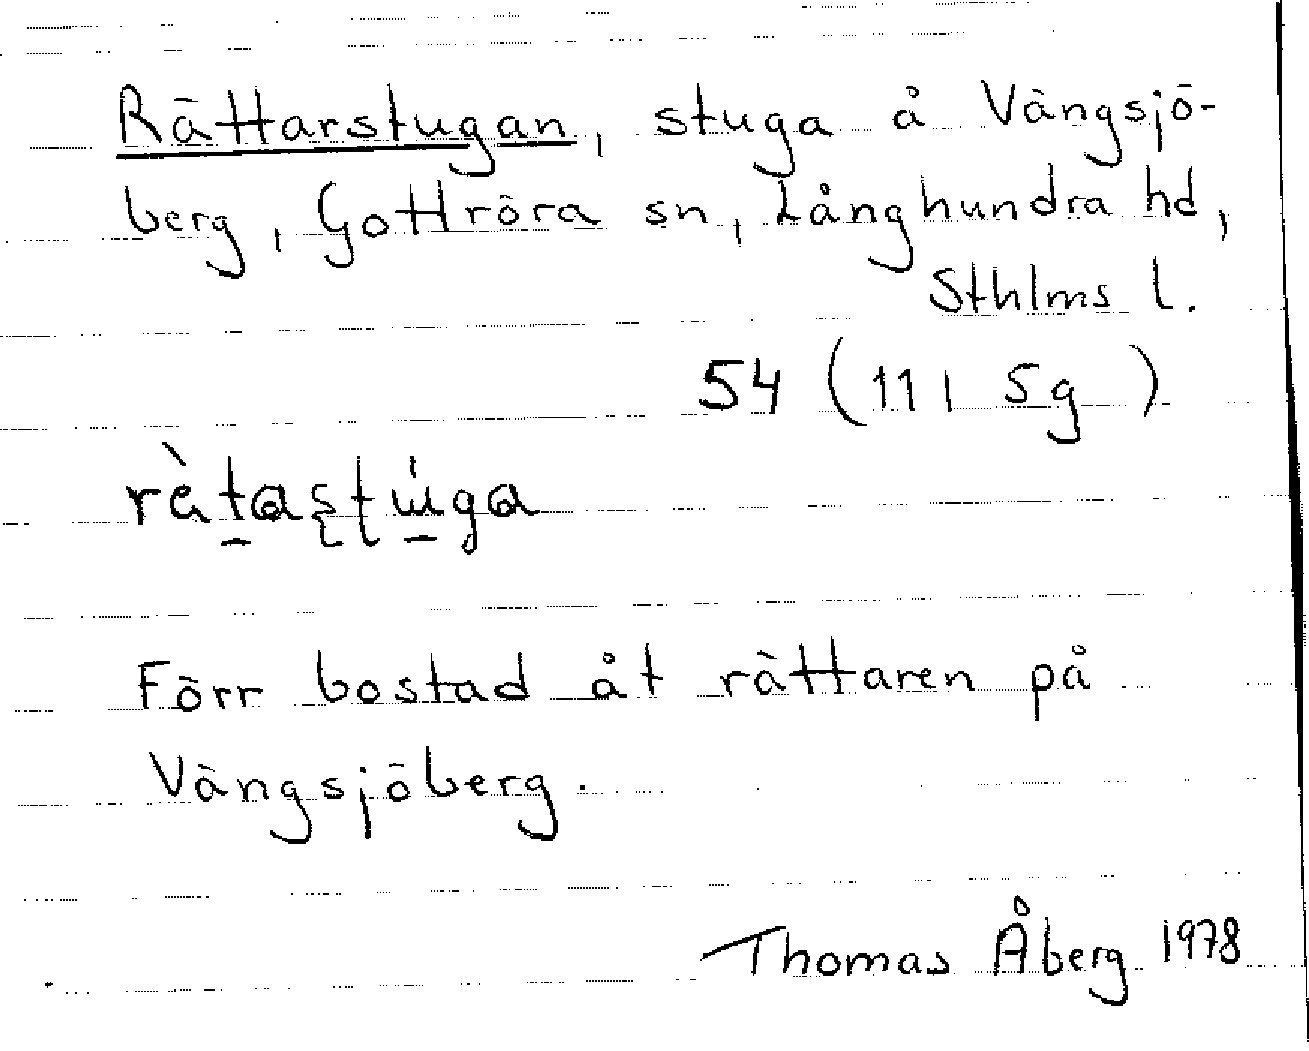 Rättarstugan, stuga å Vängsjö-
berg, Gottröra sn, Långhundra hd,
Sthlms l.
54 (11 I 5g)
Förr bostad åt rättaren på
Vängsjöberg.
Thomas Åberg 1978